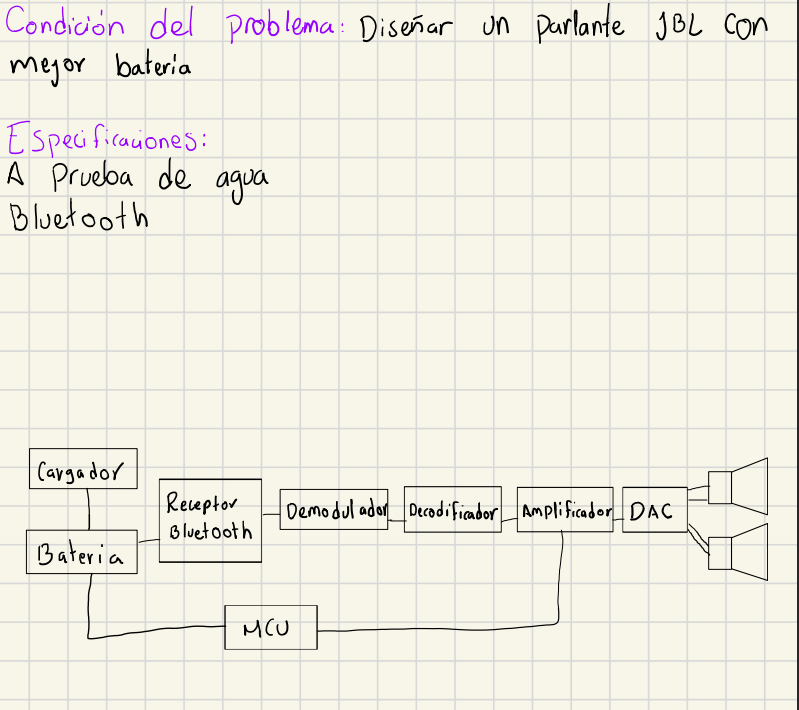 Condición del problema: Diseñar un parlante JBL con
mejor bateria
Especificaciones:
A prueba de agua
Bluetooth
Cargador
Bateria
Receptor
Bluetooth
Demodulador
Decodificador
Amplificador
DAC
MCU